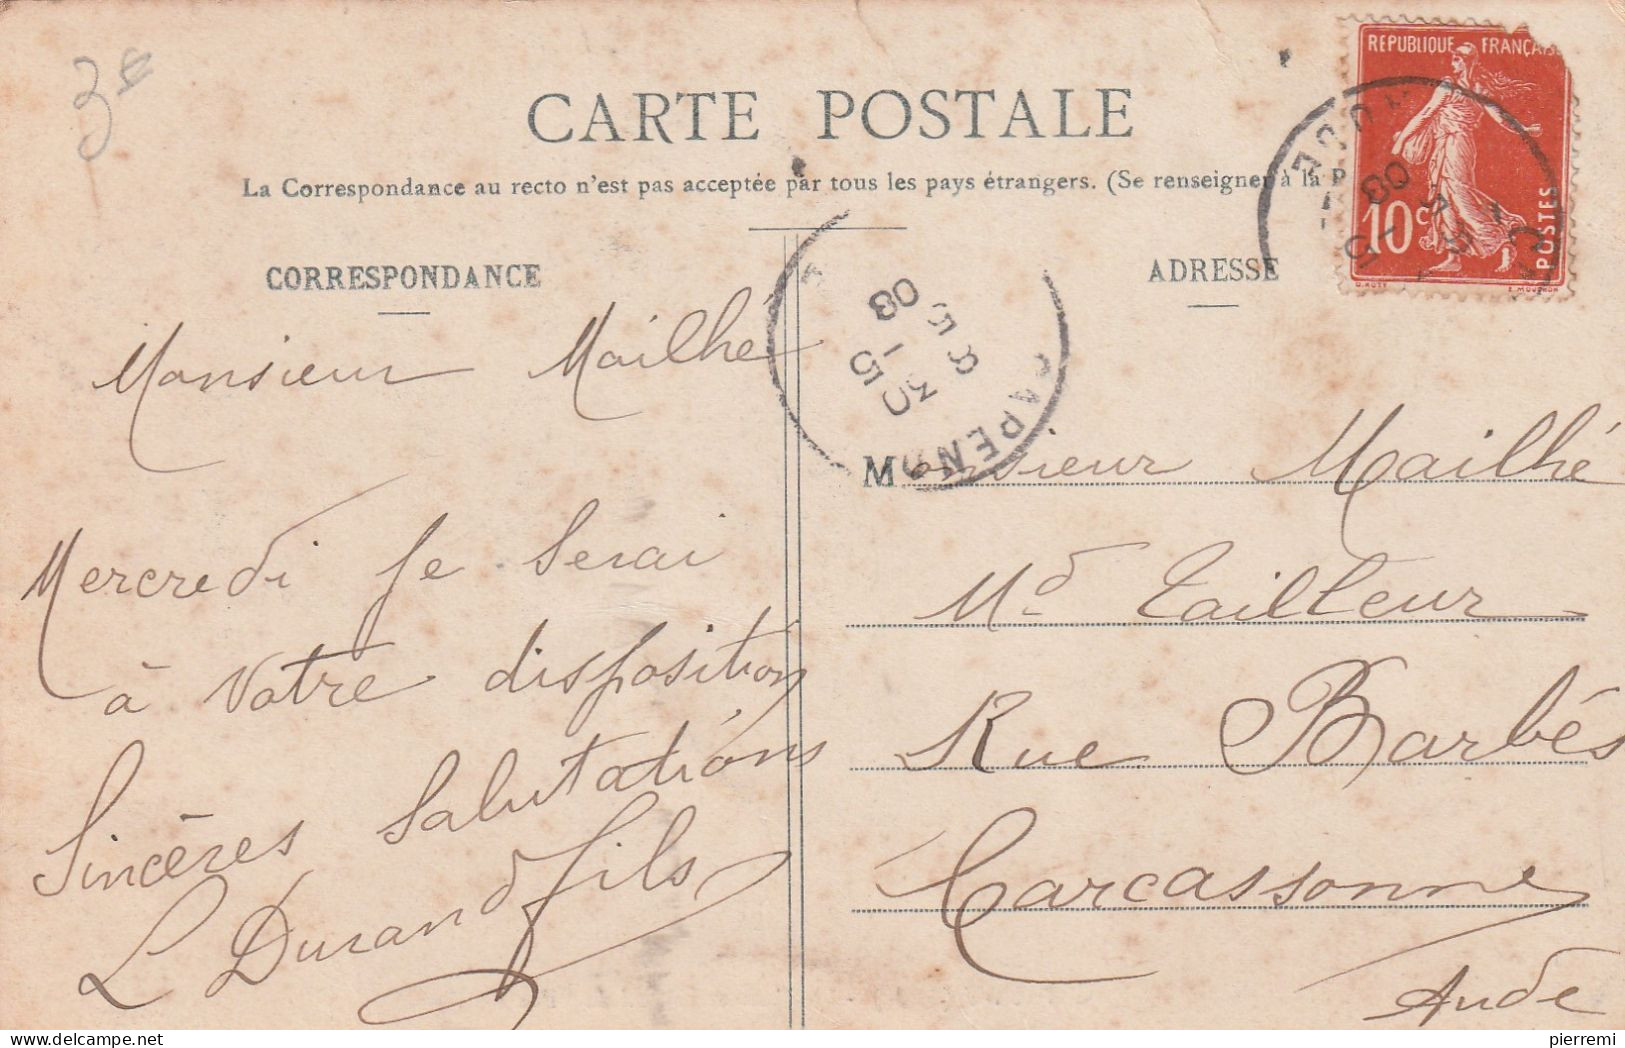 3€
CARTE POSTALE
La Correspondance au recto n'est pas acceptée par tous les pays étrangers. (Se renseigner à la P
REPUBLIQUE FRANÇAISE
10c
POSTES
O. ROTY E. MOUCHON
AUDE
5 08
CORRESPONDANCE
Monsieur Mailhé
Mercredi je serai
à votre disposition
Sincères Salutations
L Durand fils
CAPENDU
8 30
5 - 5
08
ADRESSE
Monsieur Mailhé
Md Tailleur
Rue Barbés
Carcassonne
Aude
pierremi
delcampe.net